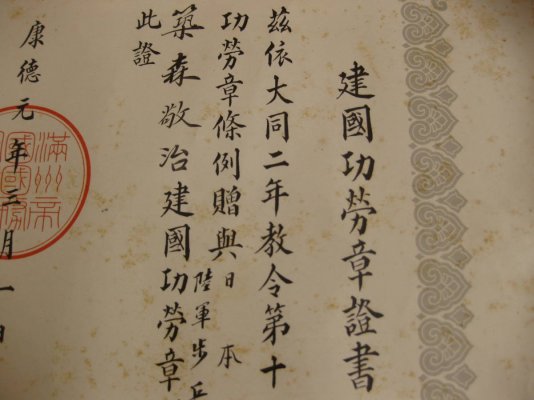 建國功勞章證書
茲依大同二年教令第十
功勞章條例贈與日本
陸軍步兵
築森敬治建國功勞章
此證
康德元年三月一日
滿洲帝